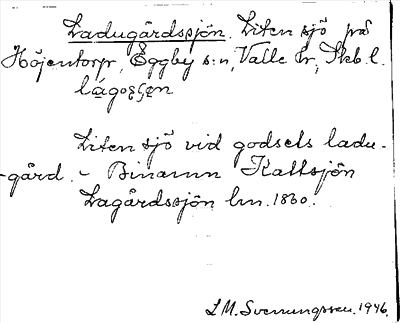 Ladugårdssjön. Liten sjö på
Höjentorp, Eggby s:n, Valle hr, Skb. l.
Liten sjö vid godsets ladu-
-gård. – Binamn Kattsjön
Lagårdssjön hn. 1860.
L.M. Svenungsson. 1946.